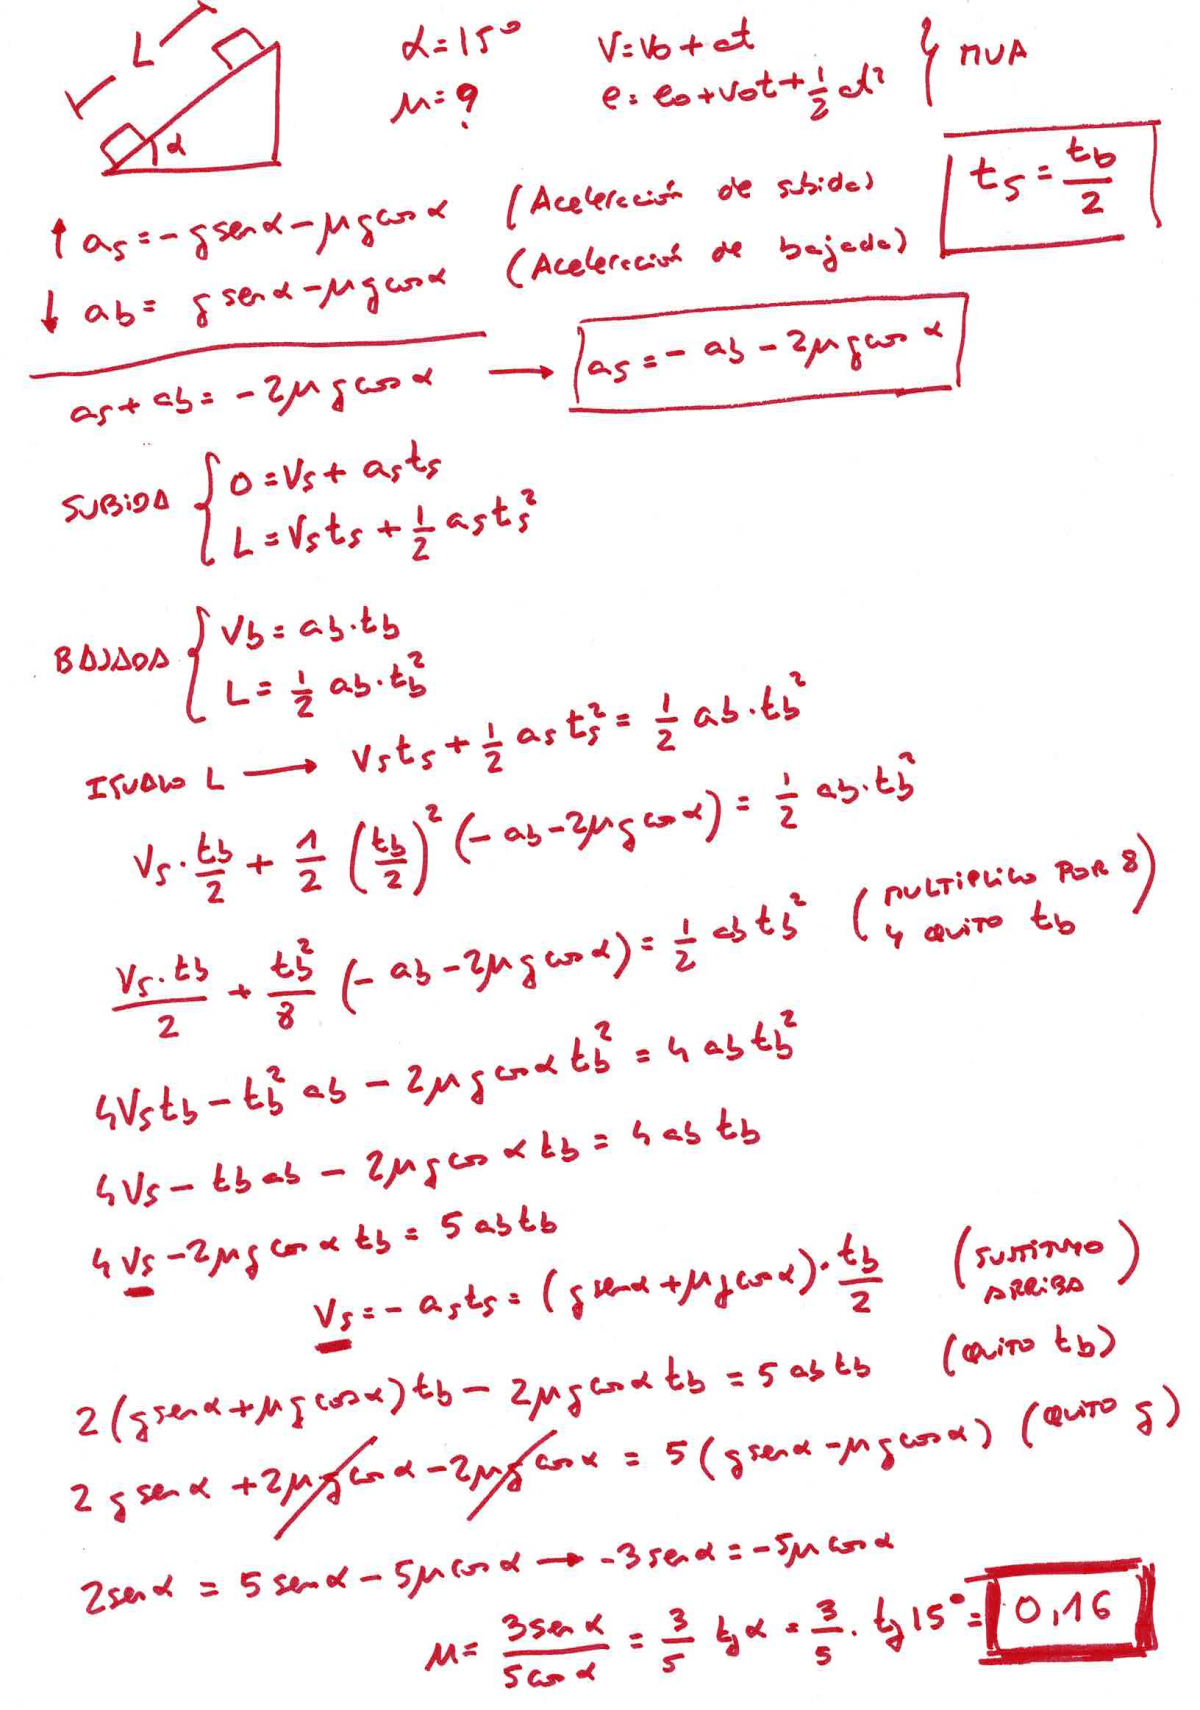 L
α
α=15º
μ=?
v=v₀+at
e=e₀+v₀t+½at²
} MUA
ts = tb/2
↑ as=-g senα-μg cosα (Aceleración de subida)
↓ ab= g senα-μg cosα (Aceleración de bajada)
as+ab=-2μg cosα → as=-ab-2μg cos α
SUBIDA { 0=Vs+as ts
L=Vs ts+½ as ts²
BAJADA { Vb=ab·tb
L=½ ab·tb²
IGUALO L → Vs ts+½ as ts²=½ ab·tb²
Vs·tb/2+1/2 (tb/2)² (-ab-2μg cosα)=½ ab·tb²
Vs·tb/2+tb²/8 (-ab-2μg cosα)=½ ab tb² (MULTIPLICO POR 8 y QUITO tb)
4Vs tb-tb² ab-2μg cosα tb²=4 ab tb²
4Vs-tb ab-2μg cos α tb=4 ab tb
4Vs-2μg cos α tb=5 ab tb
Vs=-as ts=(g senα+μg cosα)·tb/2 (SUSTITUYO ARRIBA)
2(g senα+μg cosα)tb-2μg cosα tb=5 ab tb (QUITO tb)
2 g sen α+2μg cos α-2μg cos α=5(g senα-μg cosα) (QUITO g)
2senα = 5 senα-5μ cosα → -3senα=-5μ cos α
μ=3sen α/5cos α=3/5 tg α=3/5·tg 15º=0,16